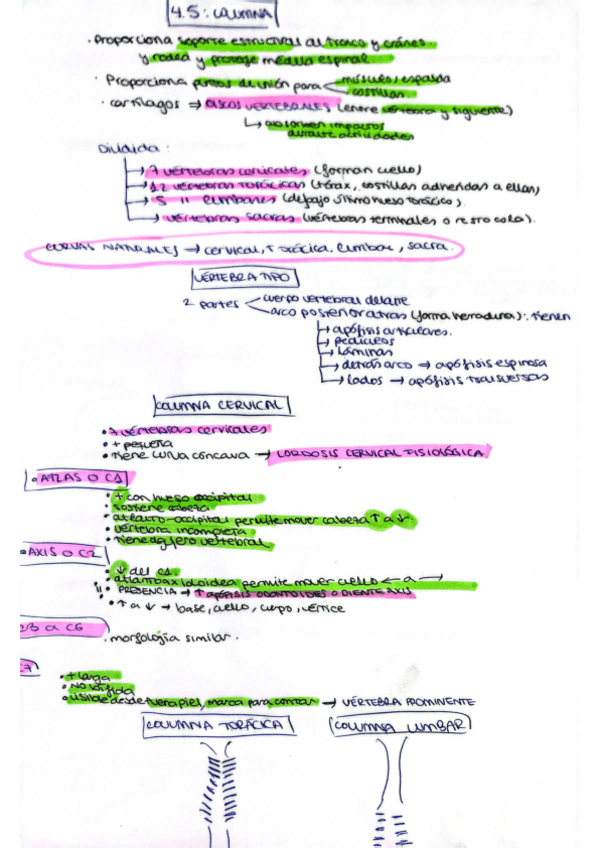 4.5: COLUMNA
· Proporciona soporte estructural al tronco y cráneo.
y rodea y protege médula espinal.
· Proporciona puntos de unión para músculos espalda
costillas.
· cartílagos → DISCOS VERTEBRALES (entre vértebra y siguiente)
↳ absorben impactos
durante actividades
Dividida:
→ 7 vértebras cervicales (forman cuello)
→ 12 vértebras torácicas (tórax, costillas adheridas a ellas)
→ 5 " lumbares (debajo último hueso torácico).
→ vértebras sacras (vértebras terminales o resto cola).
CURVAS NATURALES → cervical, torácica, lumbar, sacra.
VÉRTEBRA TIPO
2 partes cuerpo vertebral delante
arco posterior atrás (forma herradura): tienen
→ apófisis articulares.
→ pedículos
→ láminas
→ detrás arco → apófisis espinosa
→ lados → apófisis transversas
COLUMNA CERVICAL
• 7 vértebras cervicales
• + pequeña
• tiene curva cóncava → LORDOSIS CERVICAL FISIOLÓGICA
• ATLAS O C1
• + con hueso occipital
• sostiene cabeza
• atlanto-occipital permite mover cabeza ↑ a ↓.
• vértebra incompleta
• tiene agujero vertebral
• AXIS O C2
• ↓ del C1.
• atlantoaxoidoidea permite mover cuello ← a →
• PRESENCIA → ↑ APÓFISIS ODONTOIDES O DIENTE AXIS
• ↑ a ↓ → base, cuello, cuerpo, vértice
C3 a C6
· morfolojía similar.
C7
• + larga
• No bífida
• visible desde fuera piel, marca para contar → VÉRTEBRA PROMINENTE
COLUMNA TORÁCICA
COLUMNA LUMBAR